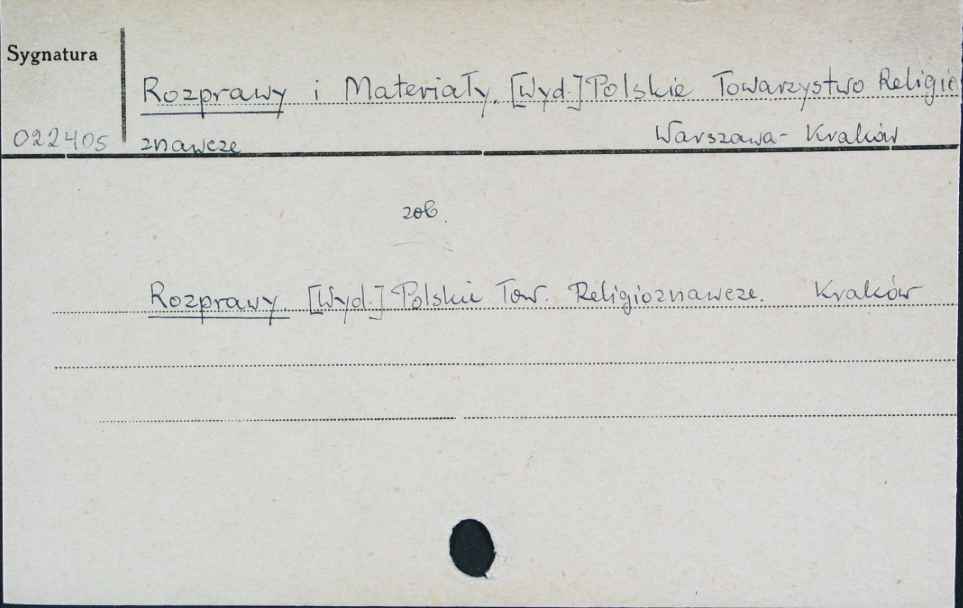 Sygnatura
Rozprawy i Materiały. [Wyd.] Polskie Towarzystwo Religio
022405 znawcze Warszawa - Kraków
zob.
Rozprawy. [Wyd.] Polskie Tow. Religioznawcze. Kraków